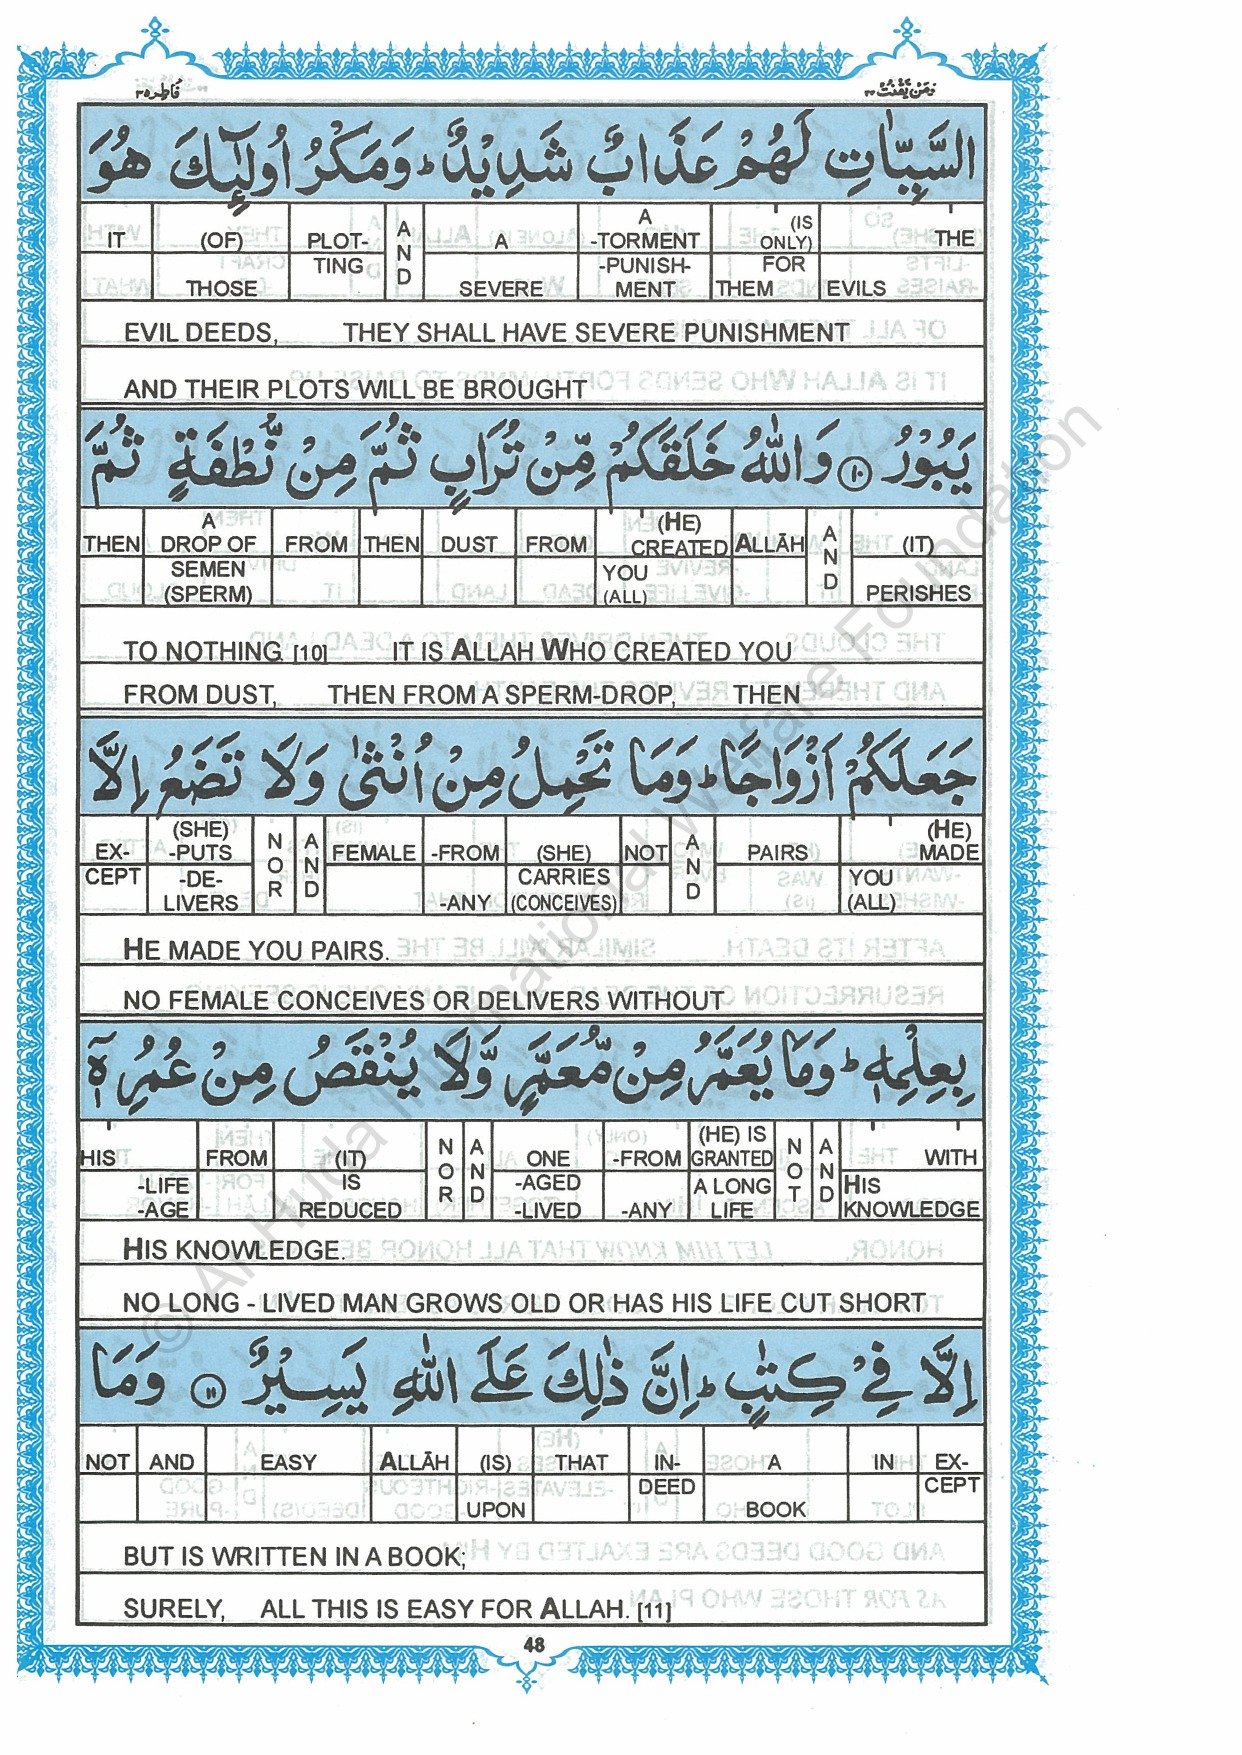 ومن يقنت ٢٢
فاطر ٣٥
السَّيِّاٰتِ لَهُمْ عَذَابٌ شَدِيْدٌ ؕ وَمَكْرُ اُولٰٓئِكَ هُوَ
IT (OF) PLOT- AND A A -TORMENT (IS ONLY) THE
THOSE TING SEVERE -PUNISH- MENT FOR THEM EVILS
EVIL DEEDS, THEY SHALL HAVE SEVERE PUNISHMENT
AND THEIR PLOTS WILL BE BROUGHT
يَبُوْرُ ۝١٠ وَاللّٰهُ خَلَقَكُمْ مِّنْ تُرَابٍ ثُمَّ مِنْ نُّطْفَةٍ ثُمَّ
THEN A DROP OF FROM THEN DUST FROM (HE) CREATED ALLĀH AND (IT)
SEMEN (SPERM) YOU (ALL) PERISHES
TO NOTHING. [10] IT IS ALLAH WHO CREATED YOU
FROM DUST, THEN FROM A SPERM-DROP, THEN
جَعَلَكُمْ اَزْوَاجًا ؕ وَمَا تَحْمِلُ مِنْ اُنْثٰى وَلَا تَضَعُ اِلَّا
EX- (SHE) -PUTS NOR AND FEMALE -FROM (SHE) NOT AND PAIRS (HE) MADE
CEPT -DE- LIVERS -ANY CARRIES (CONCEIVES) YOU (ALL)
HE MADE YOU PAIRS.
NO FEMALE CONCEIVES OR DELIVERS WITHOUT
بِعِلْمِهٖ ؕ وَمَا يُعَمَّرُ مِنْ مُّعَمَّرٍ وَّلَا يُنْقَصُ مِنْ عُمُرِهٖۤ
HIS FROM (IT) NOR AND ONE -FROM (HE) IS GRANTED NOT AND WITH
-LIFE -AGE IS REDUCED -AGED -LIVED -ANY A LONG LIFE HIS KNOWLEDGE
HIS KNOWLEDGE.
NO LONG - LIVED MAN GROWS OLD OR HAS HIS LIFE CUT SHORT
اِلَّا فِيْ كِتٰبٍ ؕ اِنَّ ذٰلِكَ عَلَى اللّٰهِ يَسِيْرٌ ۝١١ وَمَا
NOT AND EASY ALLĀH (IS) THAT IN- A IN EX-
UPON DEED BOOK CEPT
BUT IS WRITTEN IN A BOOK;
SURELY, ALL THIS IS EASY FOR ALLAH. [11]
48
© Al Huda International Welfare Foundation